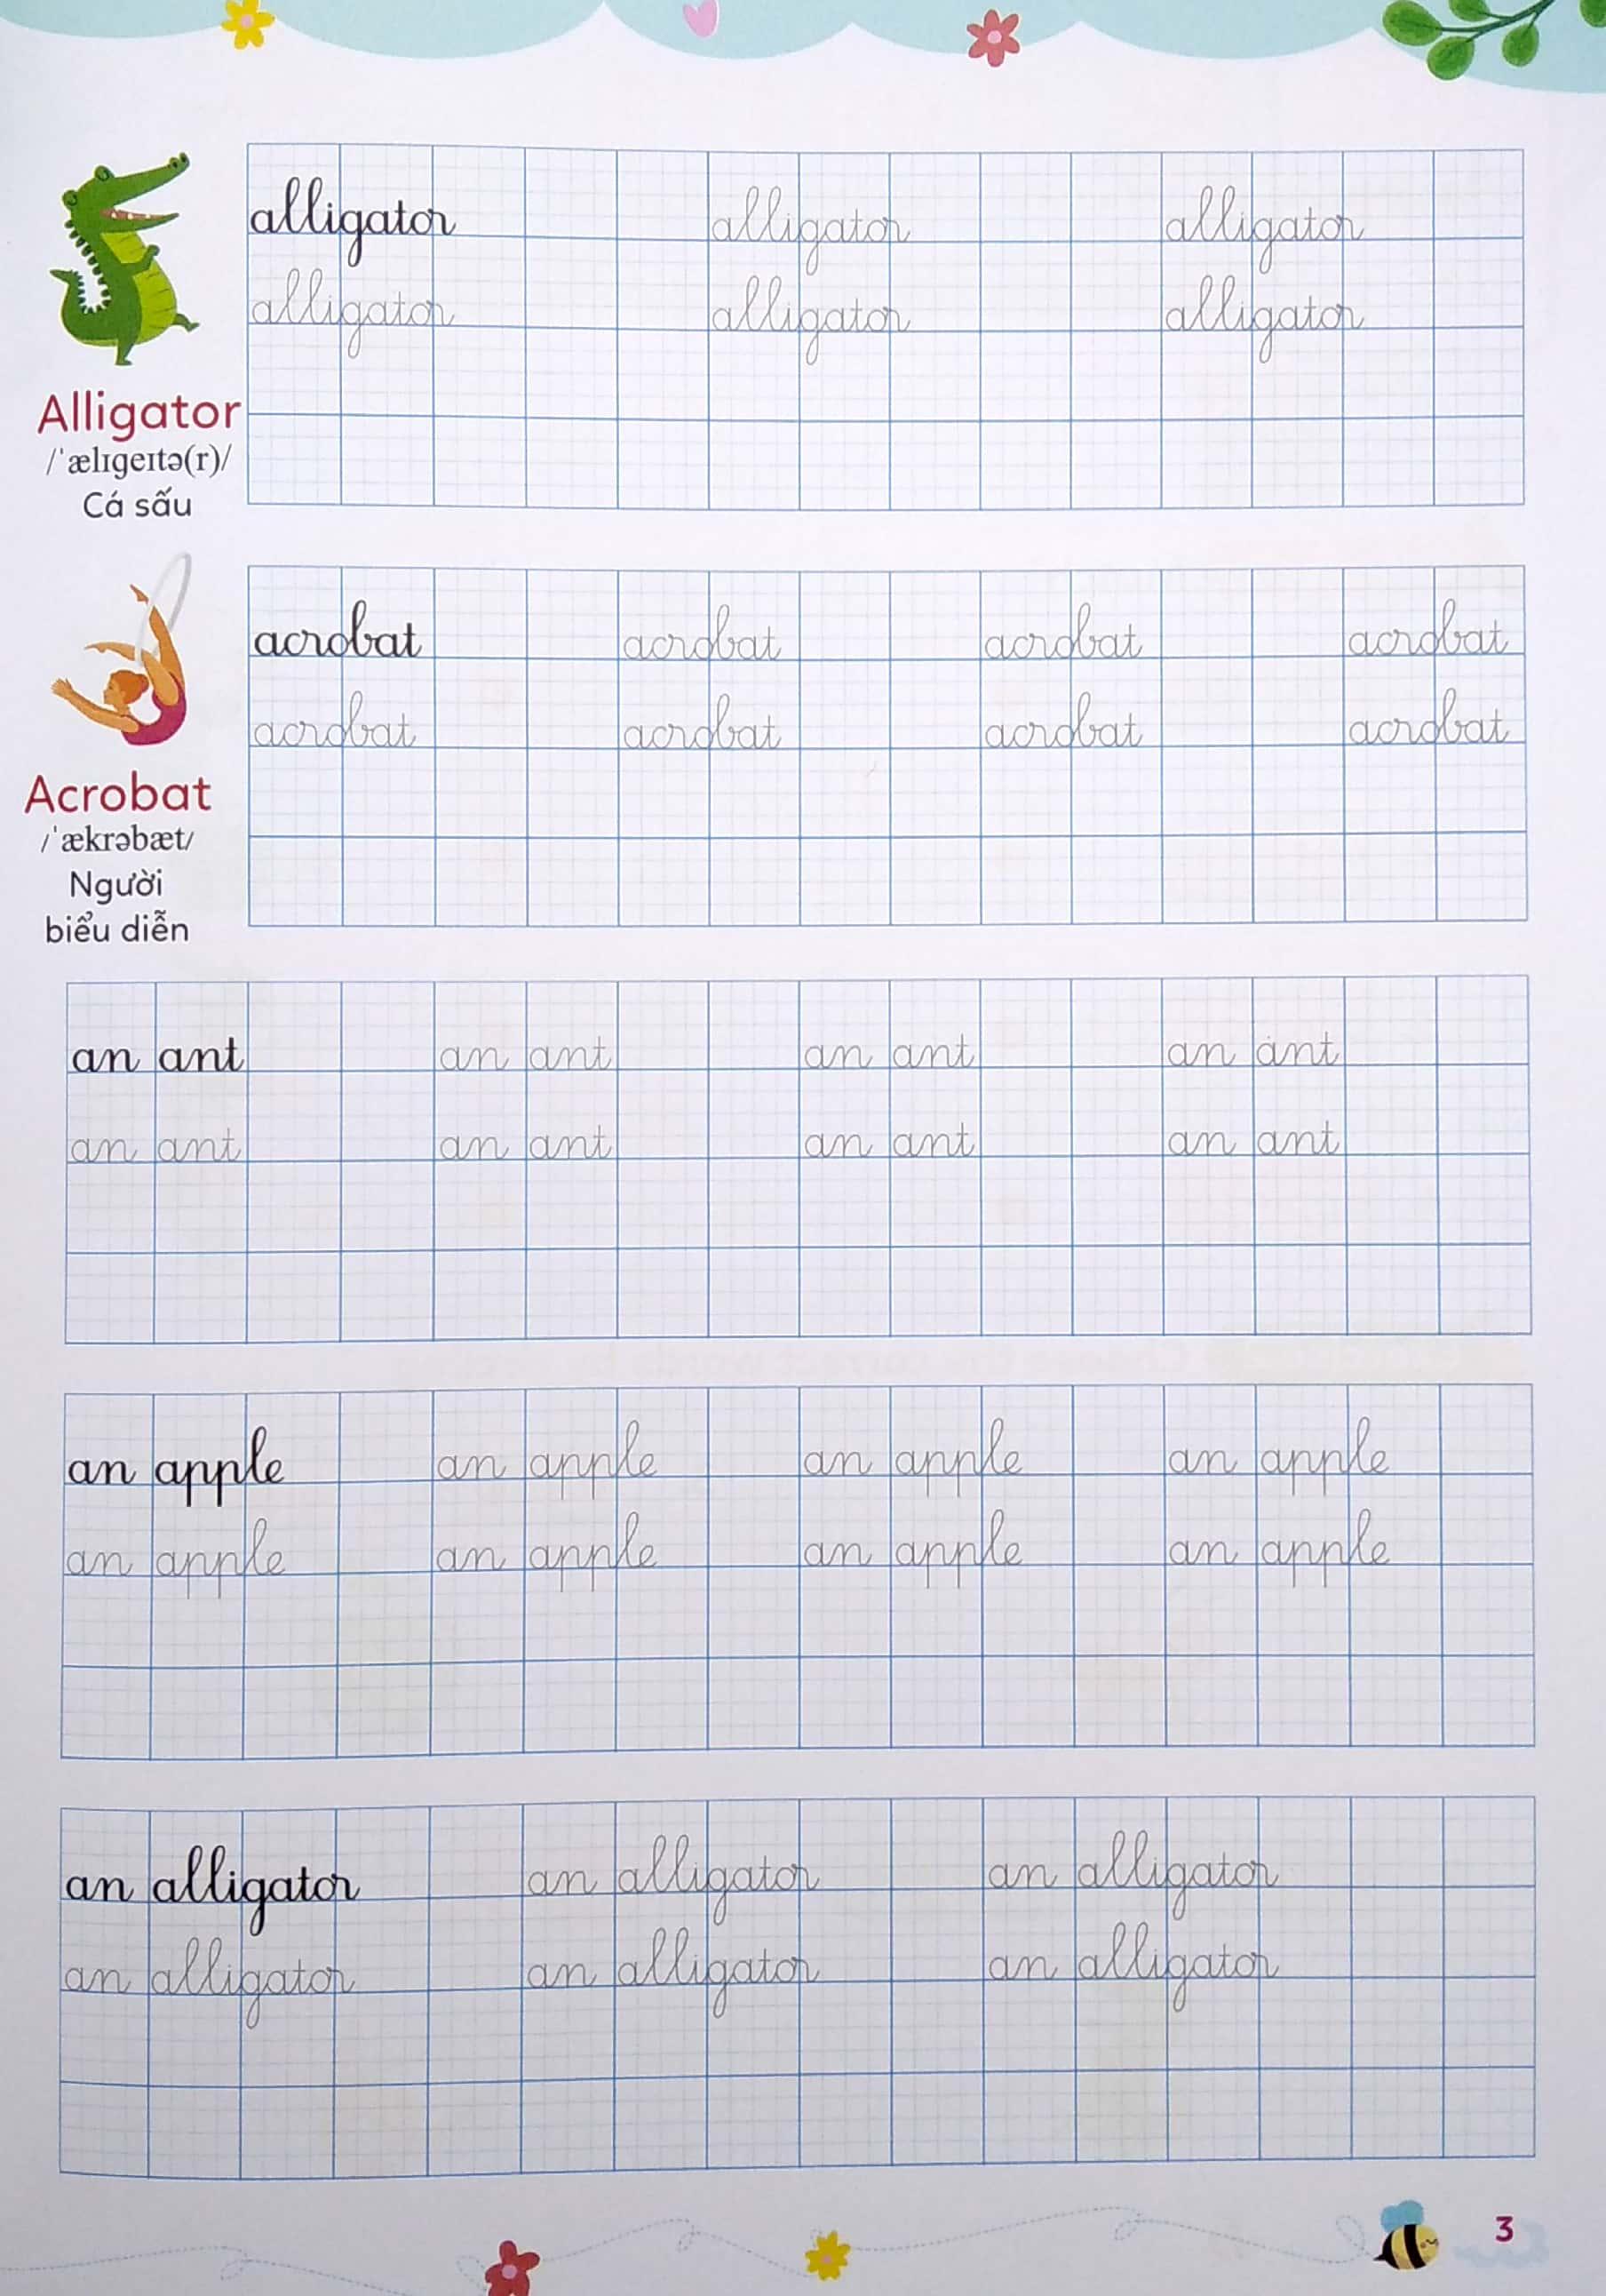 alligator alligator alligator
alligator alligator alligator
Alligator
/ˈælɪgeɪtə(r)/
Cá sấu
acrobat acrobat acrobat acrobat
acrobat acrobat acrobat acrobat
Acrobat
/ˈækrəbæt/
Người
biểu diễn
an ant an ant an ant an ant
an ant an ant an ant an ant
an apple an apple an apple an apple
an apple an apple an apple an apple
an alligator an alligator an alligator
an alligator an alligator an alligator
3